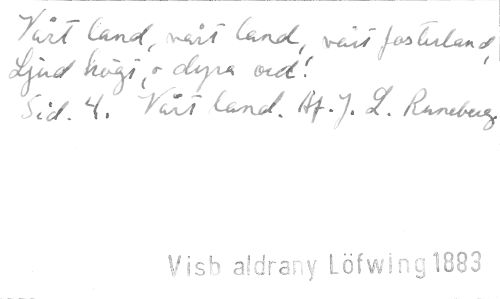 Vårt land, vårt land, vårt fosterland,
Ljud högt, o dyra ord!
Sid. 4. Vårt land. Af. J. L. Runeberg.
Visb aldrany Löfwing 1883